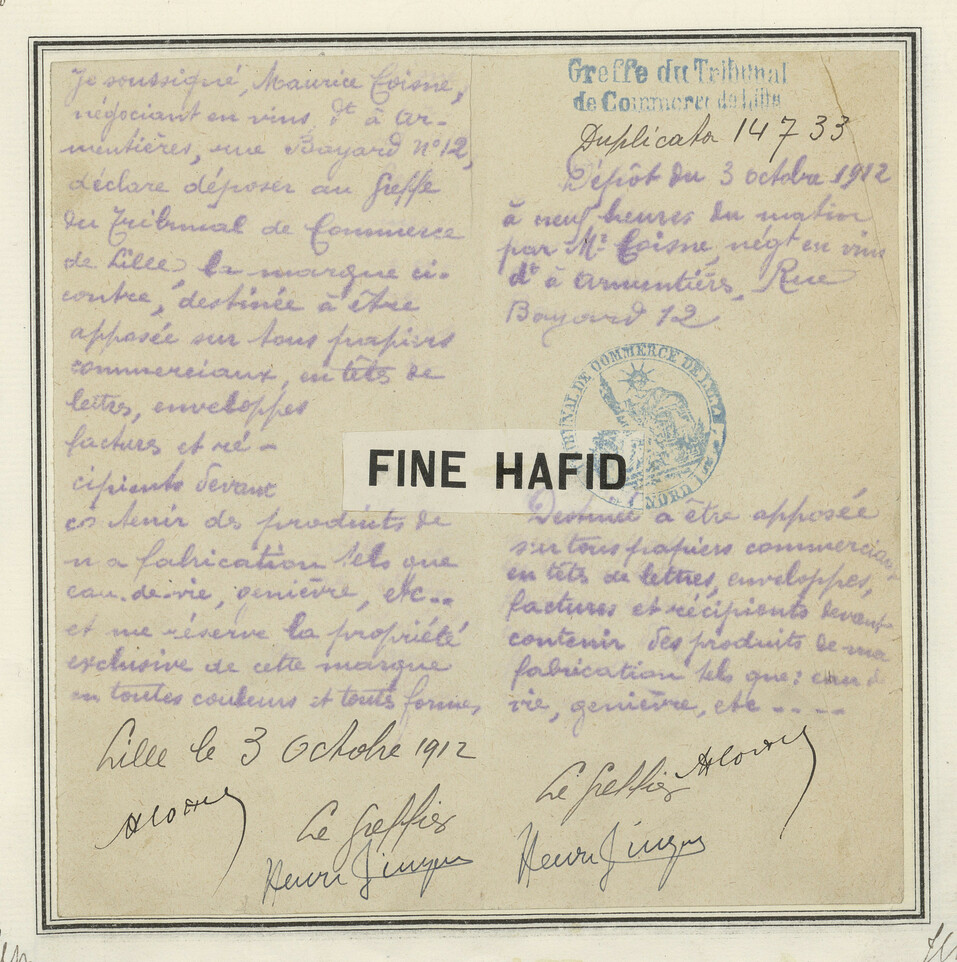 Je soussigné, Maurice Coisne,
négociant en vins, dt à Ar-
mentières, rue Bayard N° 12,
déclare déposer au Greffe
du Tribunal de Commerce
de Lille, la marque ci-
contre, destinée à être
apposée sur tous papiers
commerciaux, en têtes de
lettres, enveloppes
factures et ré-
cipients devant
co tenir des produits de
m a fabrication tels que
eau-de-vie, genièvre, etc...
et me réserve la propriété
exclusive de cette marque
en toutes couleurs et toutes formes,
Lille le 3 Octobre 1912
Le Greffier
Henri
Greffe du Tribunal
de Commerce de Lille
Duplicata 14733
Dépôt du 3 octobre 1912
à neuf heures du matin
par Mr Coisne, négt en vins
dt à Armentières, Rue
Bayard 12
TRIBUNAL DE COMMERCE DE LILLE
NORD
FINE HAFID
Destinée à être apposée
sur tous papiers commerciaux
en têtes de lettres, enveloppes,
factures et récipients devant
contenir des produits de ma
fabrication tels que: eau d
vie, genièvre, etc ....
Le Greffier
Henri